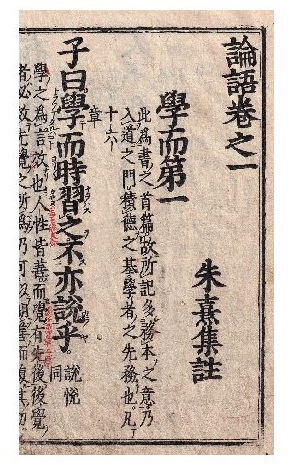 論語卷之一
朱熹集註
學而第一
此為書之首篇故所記多務本之意乃
入道之門積德之基學者之先務也凡
十六
章
子曰學而時習之不亦說乎
說悅
同
學之為言效也人性皆善而覺有先後後覺
者必效先覺之所為乃可以明善而復其初